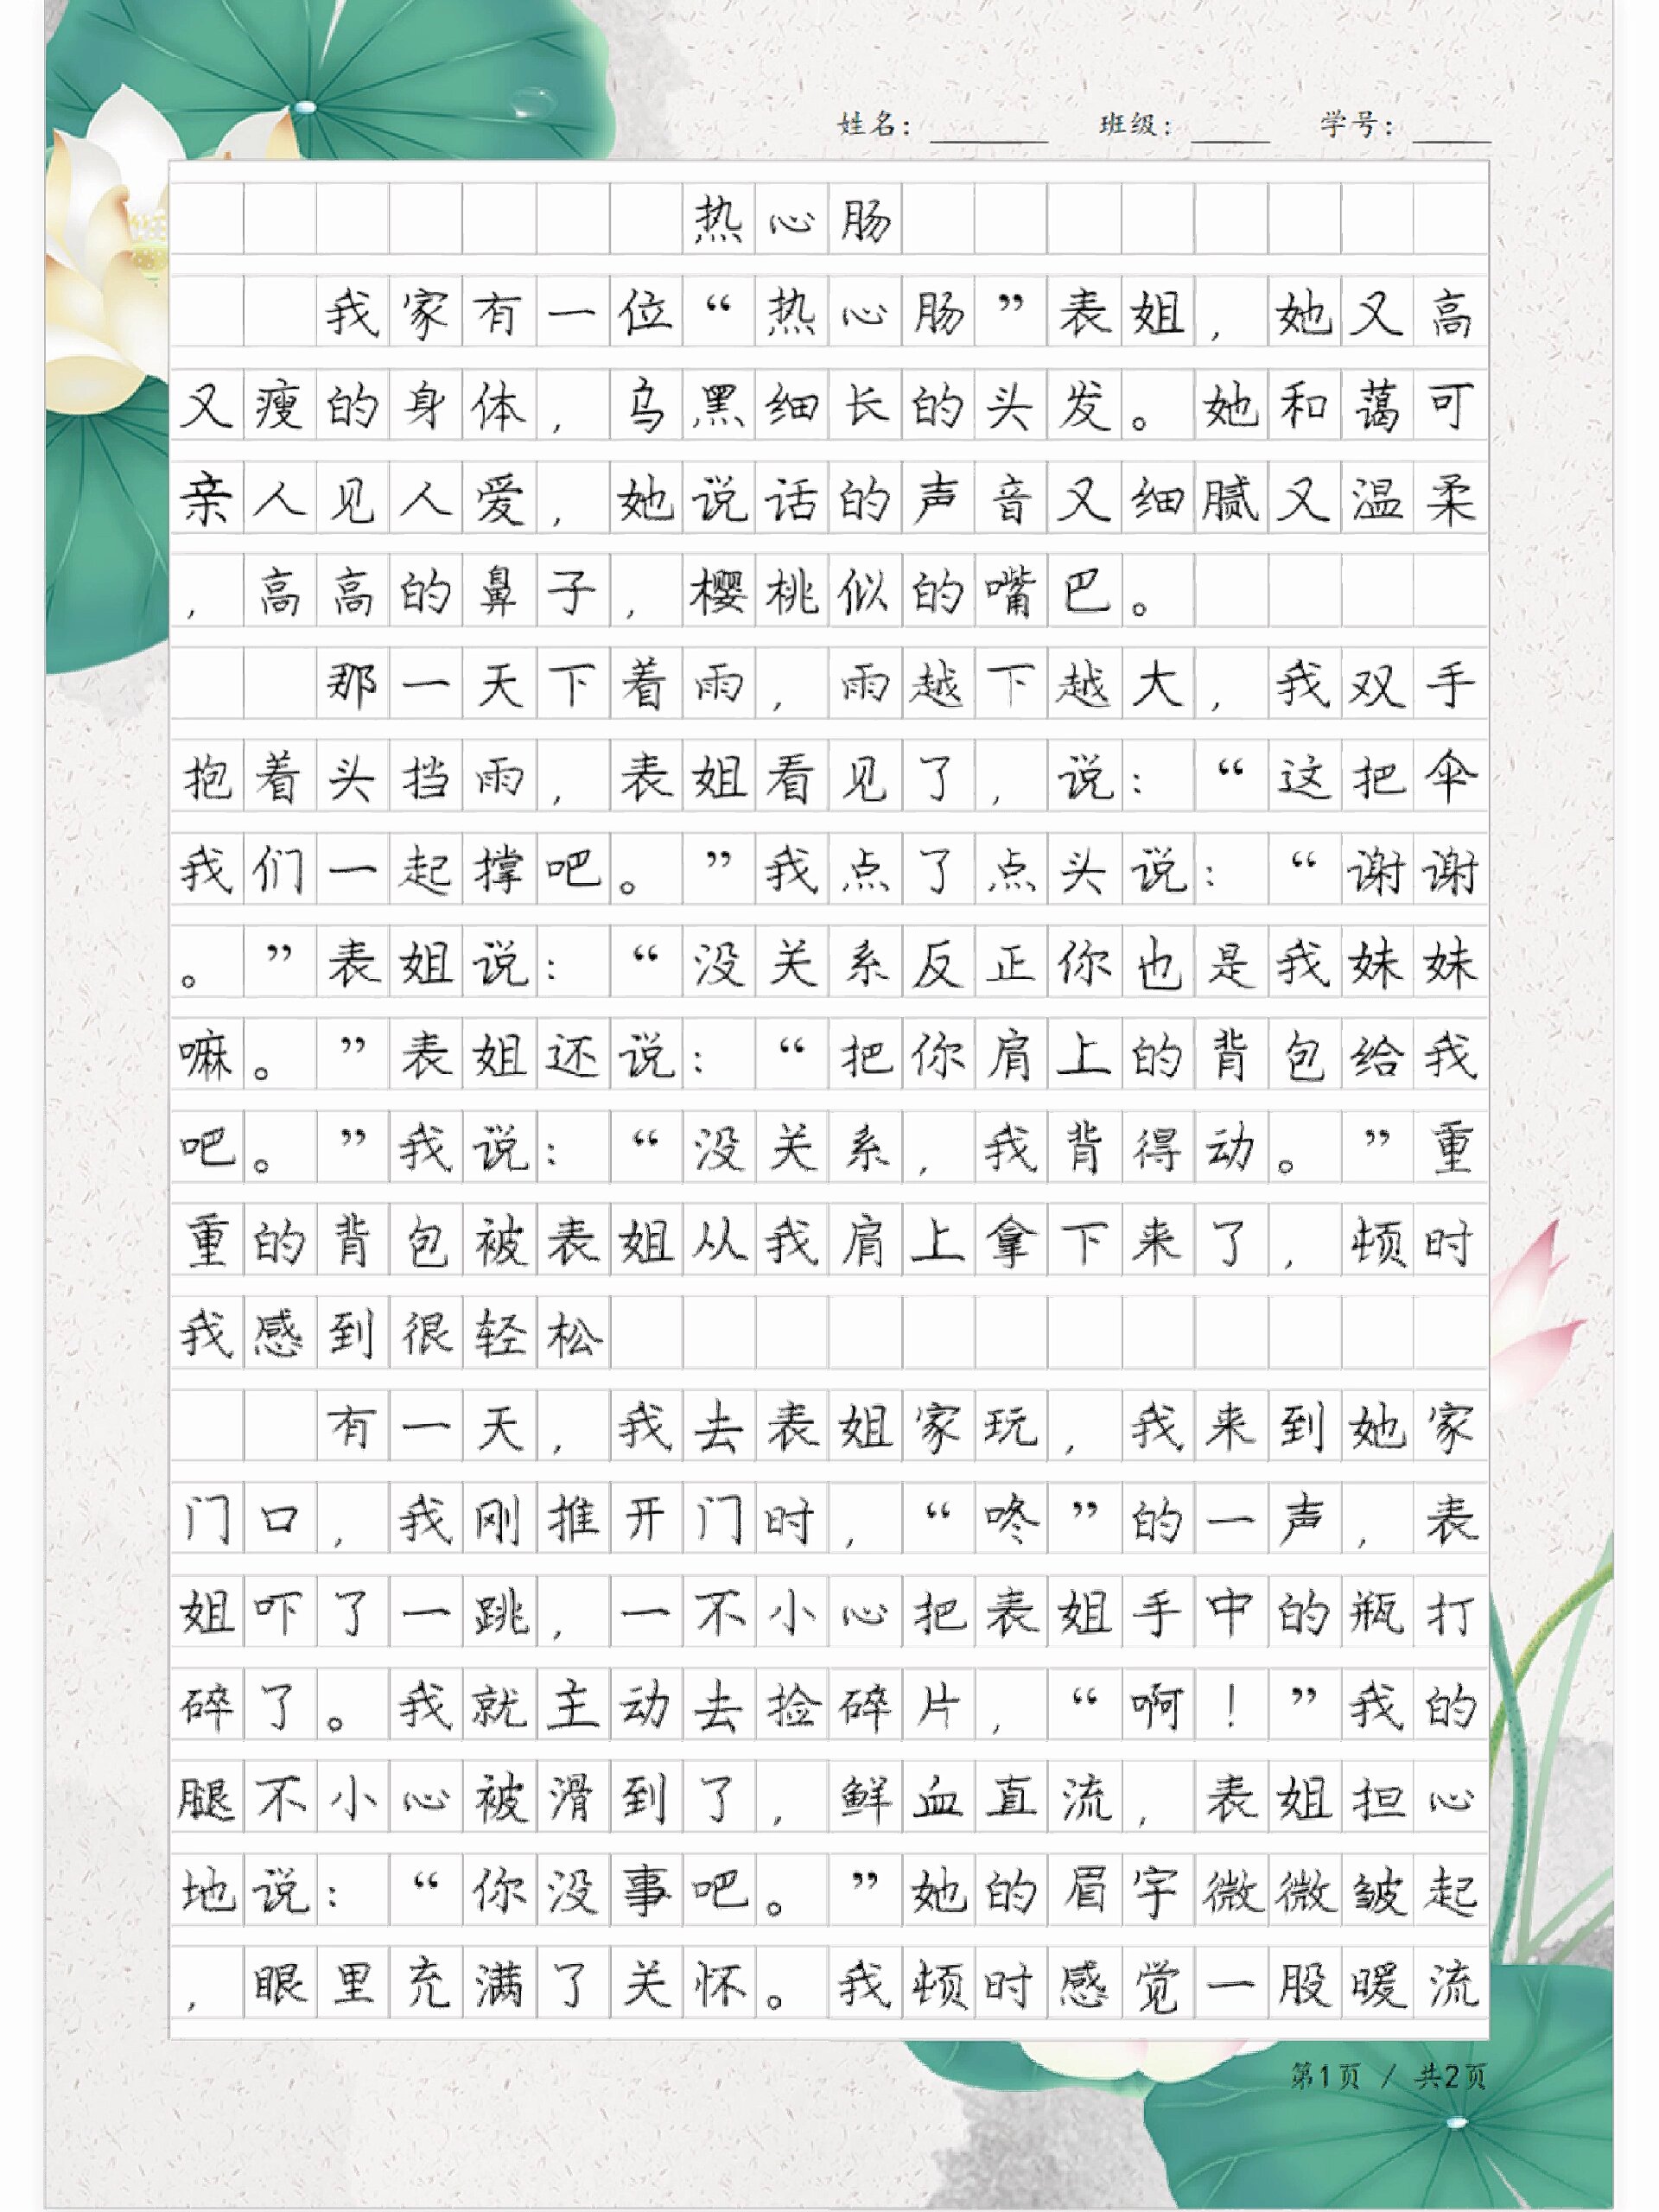 姓名： 班级： 学号：
热心肠
我家有一位“热心肠”表姐，她又高
又瘦的身体，乌黑细长的头发。她和蔼可
亲人见人爱，她说话的声音又细腻又温柔
，高高的鼻子，樱桃似的嘴巴。
那一天下着雨，雨越下越大，我双手
抱着头挡雨，表姐看见了，说：“这把伞
我们一起撑吧。”我点了点头说：“谢谢
。”表姐说：“没关系反正你也是我妹妹
嘛。”表姐还说：“把你肩上的背包给我
吧。”我说：“没关系，我背得动。”重
重的背包被表姐从我肩上拿下来了，顿时
我感到很轻松
有一天，我去表姐家玩，我来到她家
门口，我刚推开门时，“咚”的一声，表
姐吓了一跳，一不小心把表姐手中的瓶打
碎了。我就主动去捡碎片，“啊！”我的
腿不小心被滑到了，鲜血直流，表姐担心
地说：“你没事吧。”她的眉宇微微皱起
，眼里充满了关怀。我顿时感觉一股暖流
第1页 / 共2页